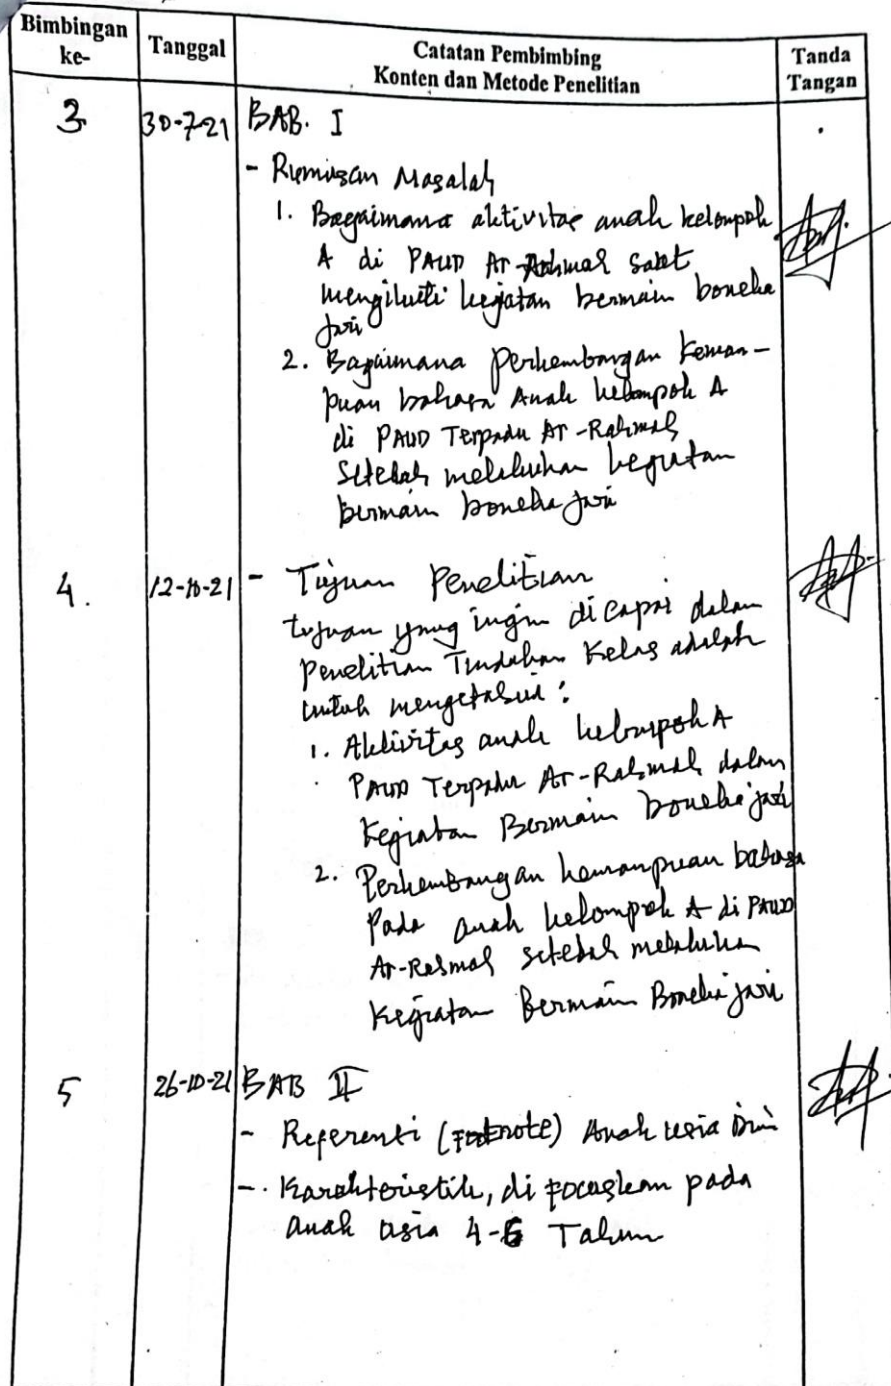 Bimbingan ke-
Tanggal
Catatan Pembimbing
Konten dan Metode Penelitian
Tanda Tangan
3 30-7-21 BAB. I
- Rumusan Masalah
1. Bagaimana aktivitas anak kelompok
A di PAUD Ar-Rahmah saat
mengikuti kegiatan bermain boneka
jari
2. Bagaimana Perkembangan Kemam-
puan bahasa Anak kelompok A
di PAUD Terpadu Ar-Rahmah
Setelah melakukan kegiatan
bermain boneka jari
4. 12-10-21 - Tujuan Penelitian
tujuan yang ingin dicapai dalam
Penelitian Tindakan Kelas adalah
untuk mengetahui :
1. Aktivitas anak kelompok A
PAUD Terpadu Ar-Rahmah dalam
Kegiatan Bermain boneka jari
2. Perkembangan kemampuan bahasa
Pada anak kelompok A di PAUD
Ar-Rahmah setelah melakukan
Kegiatan Bermain Boneka jari
5 26-10-21 BAB II
- Referensi (Footnote) Anak usia Dini
- Karakteristik, di focuskan pada
anak usia 4-5 Tahun